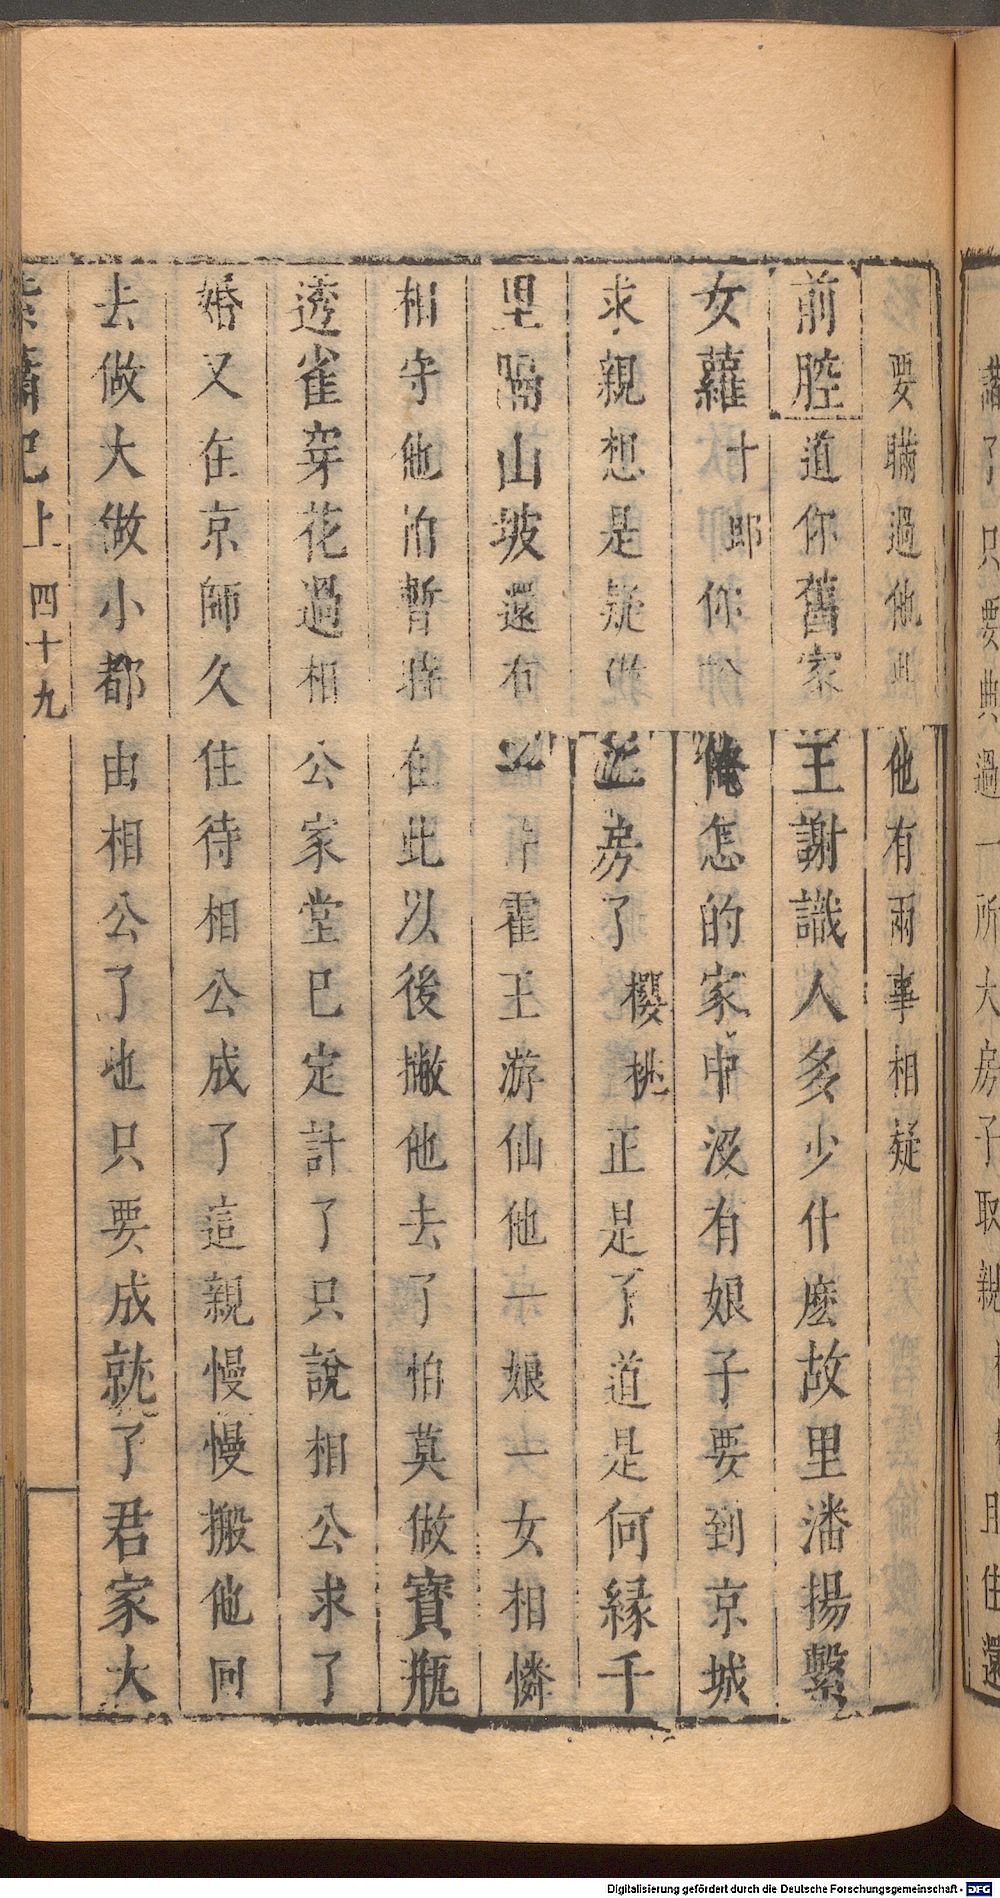 要瞞過他 他有兩事相疑
前腔 道你舊家王謝識人多少什麼故里潘揚繫
女蘿 十郎 你 俺怎的家中没有娘子要到京城
求親想是疑 近房了 櫻桃 正是了道是何縁千
里隔山坡還有 霍王游仙他一娘一女相憐
相守他 暫時在此以後撇他去了怕莫做寶瓶
透雀穿花過 相公家堂已定計了只說相公求了
婚又在京師久住待相公成了這親慢慢搬他回
去做大做小都由相公了也只要成就了君家大
簫記上 四十九
了只要典過一所大房子取親 住還
Digitalisierung gefördert durch die Deutsche Forschungsgemeinschaft - DFG